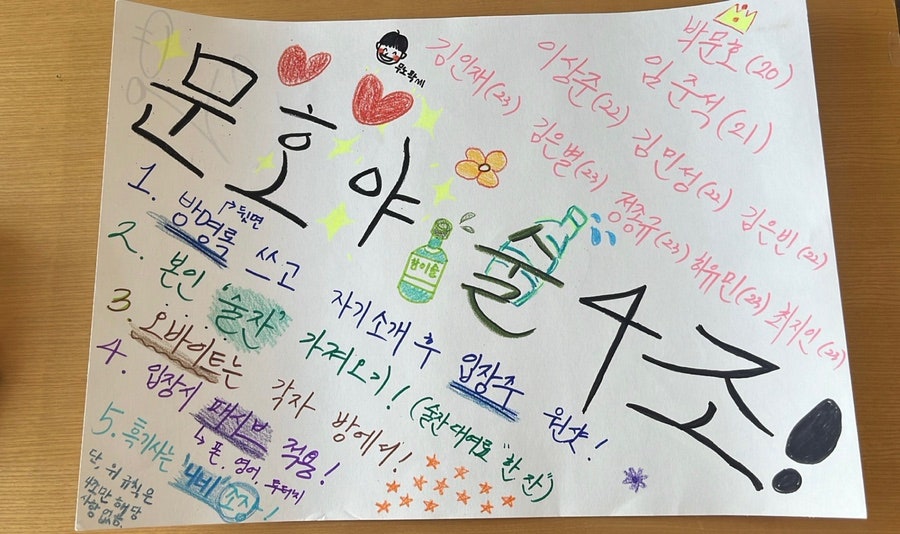 문호야 술 4조!
김인재(23) 이상준(22) 박문호(20)
임준석(21)
김은별(23) 김민성(22) 김은빈(22)
정종규(23) 허유민(23) 최지인(23)
참이슬
1. 방명록 쓰고 자기소개 후 입장주 원샷!
↱뒷면
2. 본인 "술잔" 가져오기! (술잔대여료 "한 잔")
3. 오바이트는 각자 방에서!
4. 입장시 패시브 적용!
↳ 폰, 영어,
5. 흑기사는 '4배' 소주!
단, 위 규칙은
4조만 해당
사항 없음.